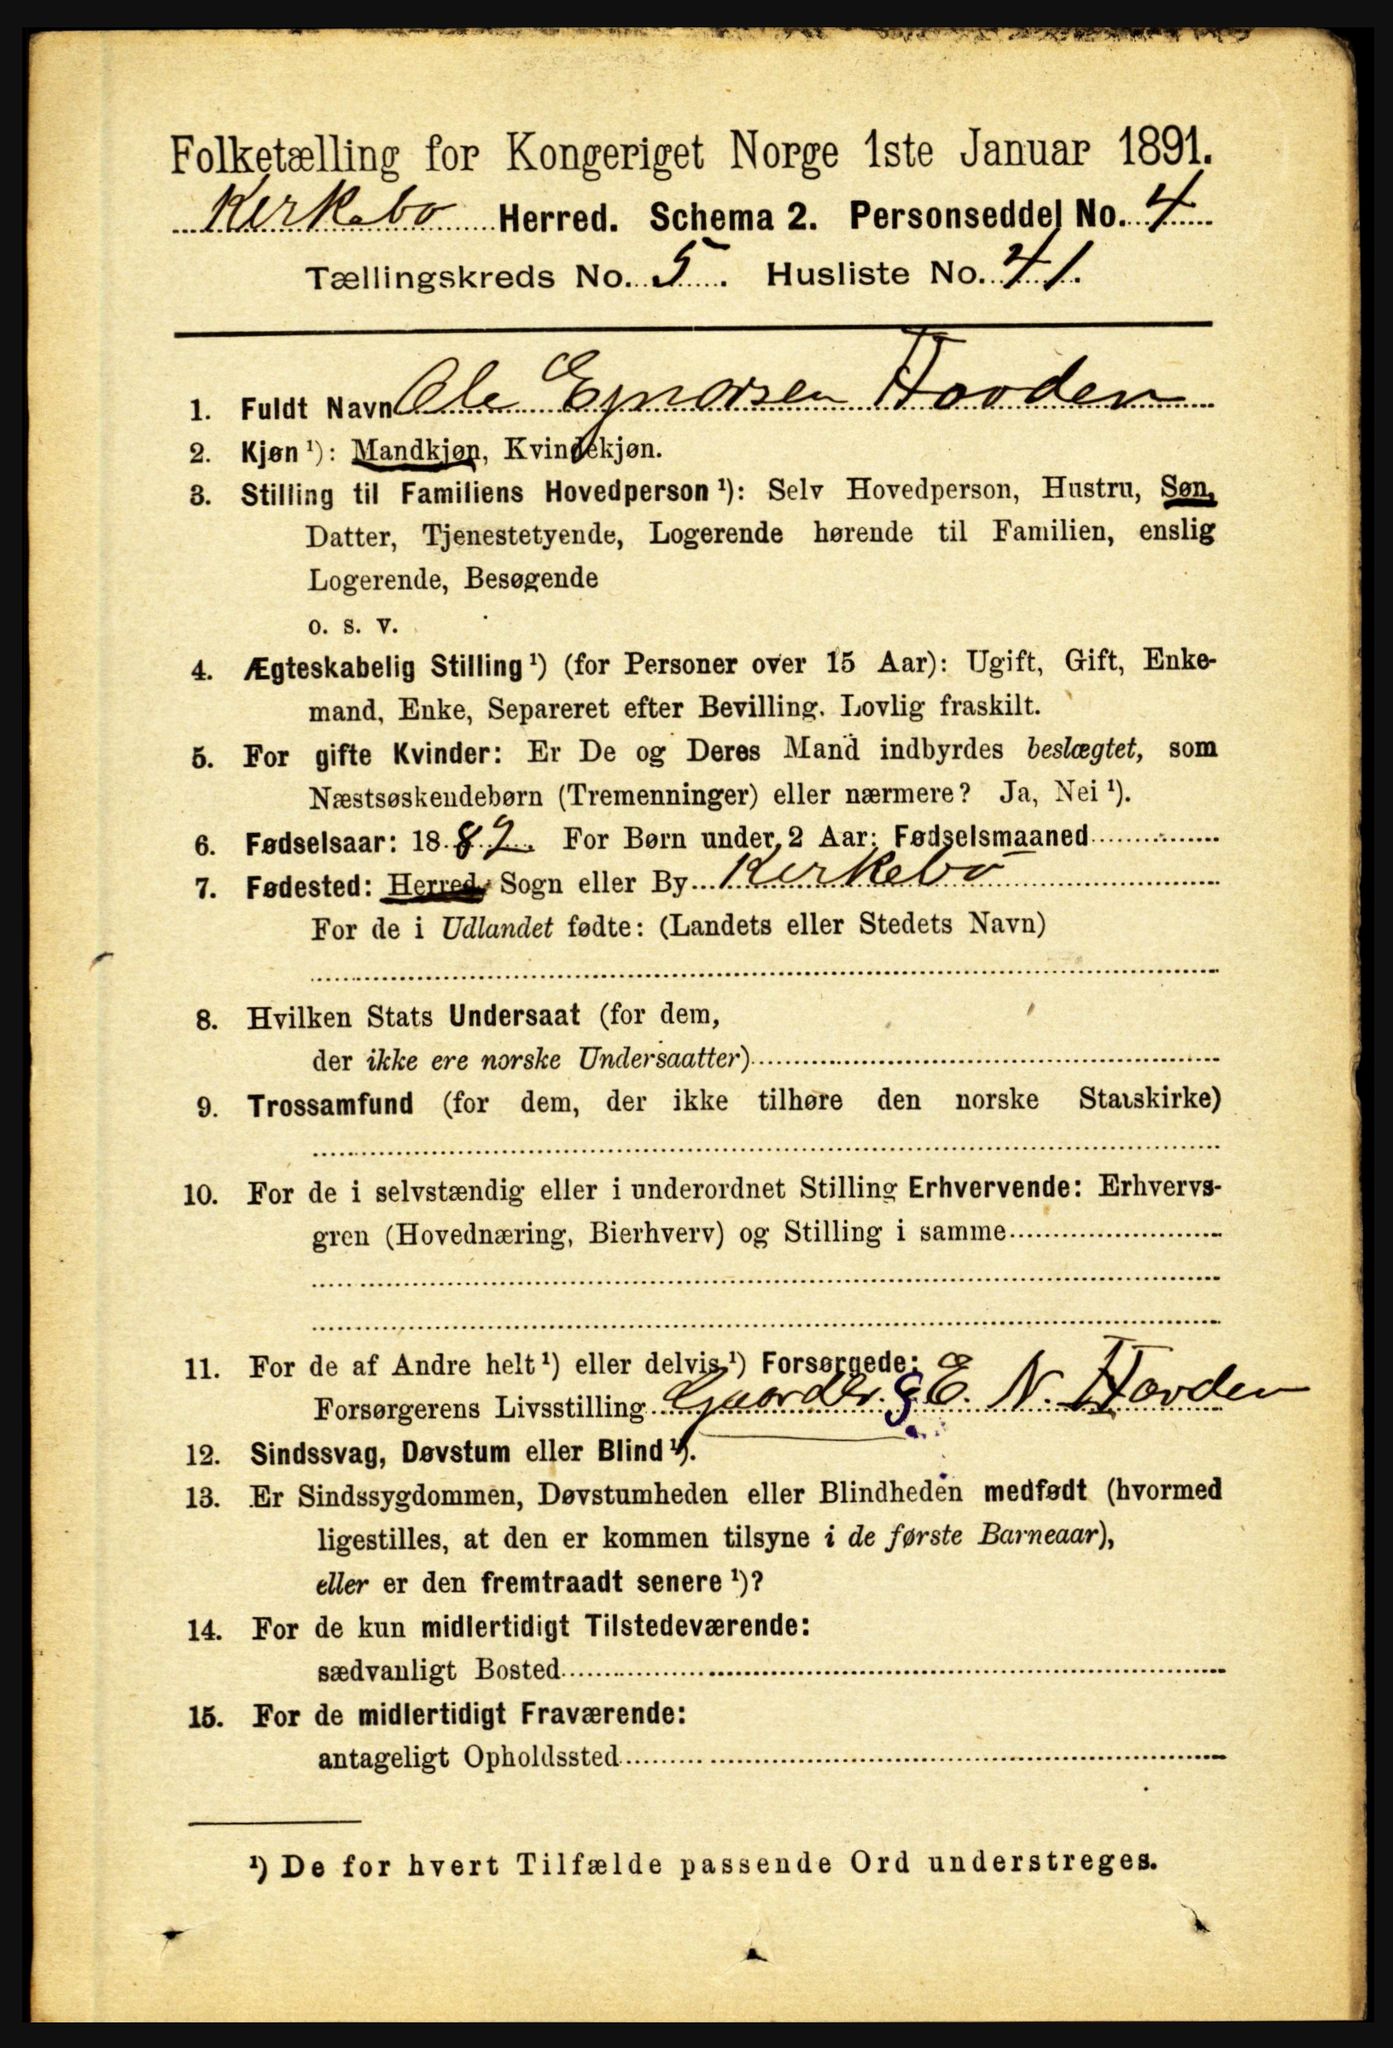 Folketælling for Kongeriget Norge 1ste Januar 1891.
Kirkebø Herred. Schema 2. Personseddel No. 4
Tællingskreds No. 5. Husliste No. 41.
1. Fuldt Navn Ole Ejnarsen Hovden
2. Kjøn¹): Mandkjøn, Kvindekjøn.
3. Stilling til Familiens Hovedperson¹): Selv Hovedperson, Hustru, Søn,
Datter, Tjenestetyende, Logerende hørende til Familien, enslig
Logerende, Besøgende
o. s. v.
4. Ægteskabelig Stilling¹) (for Personer over 15 Aar): Ugift, Gift, Enke-
mand, Enke, Separeret efter Bevilling. Lovlig fraskilt.
5. For gifte Kvinder: Er De og Deres Mand indbyrdes beslægtet, som
Næstsøskendebørn (Tremenninger) eller nærmere? Ja, Nei¹).
6. Fødselsaar: 18 82. For Børn under 2 Aar: Fødselsmaaned
7. Fødested: Herred, Sogn eller By Kirkebø
For de i Udlandet fødte: (Landets eller Stedets Navn)
8. Hvilken Stats Undersaat (for dem,
der ikke ere norske Undersaatter)
9. Trossamfund (for dem, der ikke tilhøre den norske Statskirke)
10. For de i selvstændig eller i underordnet Stilling Erhvervende: Erhvervs-
gren (Hovednæring, Bierhverv) og Stilling i samme
11. For de af Andre helt¹) eller delvis¹) Forsørgede:
Forsørgerens Livsstilling Gaardbr. S E. N. Hovden
12. Sindssvag, Døvstum eller Blind¹).
13. Er Sindssygdommen, Døvstumheden eller Blindheden medfødt (hvormed
ligestilles, at den er kommen tilsyne i de første Barneaar),
eller er den fremtraadt senere¹)?
14. For de kun midlertidigt Tilstedeværende:
sædvanligt Bosted
15. For de midlertidigt Fraværende:
antageligt Opholdssted
¹) De for hvert Tilfælde passende Ord understreges.